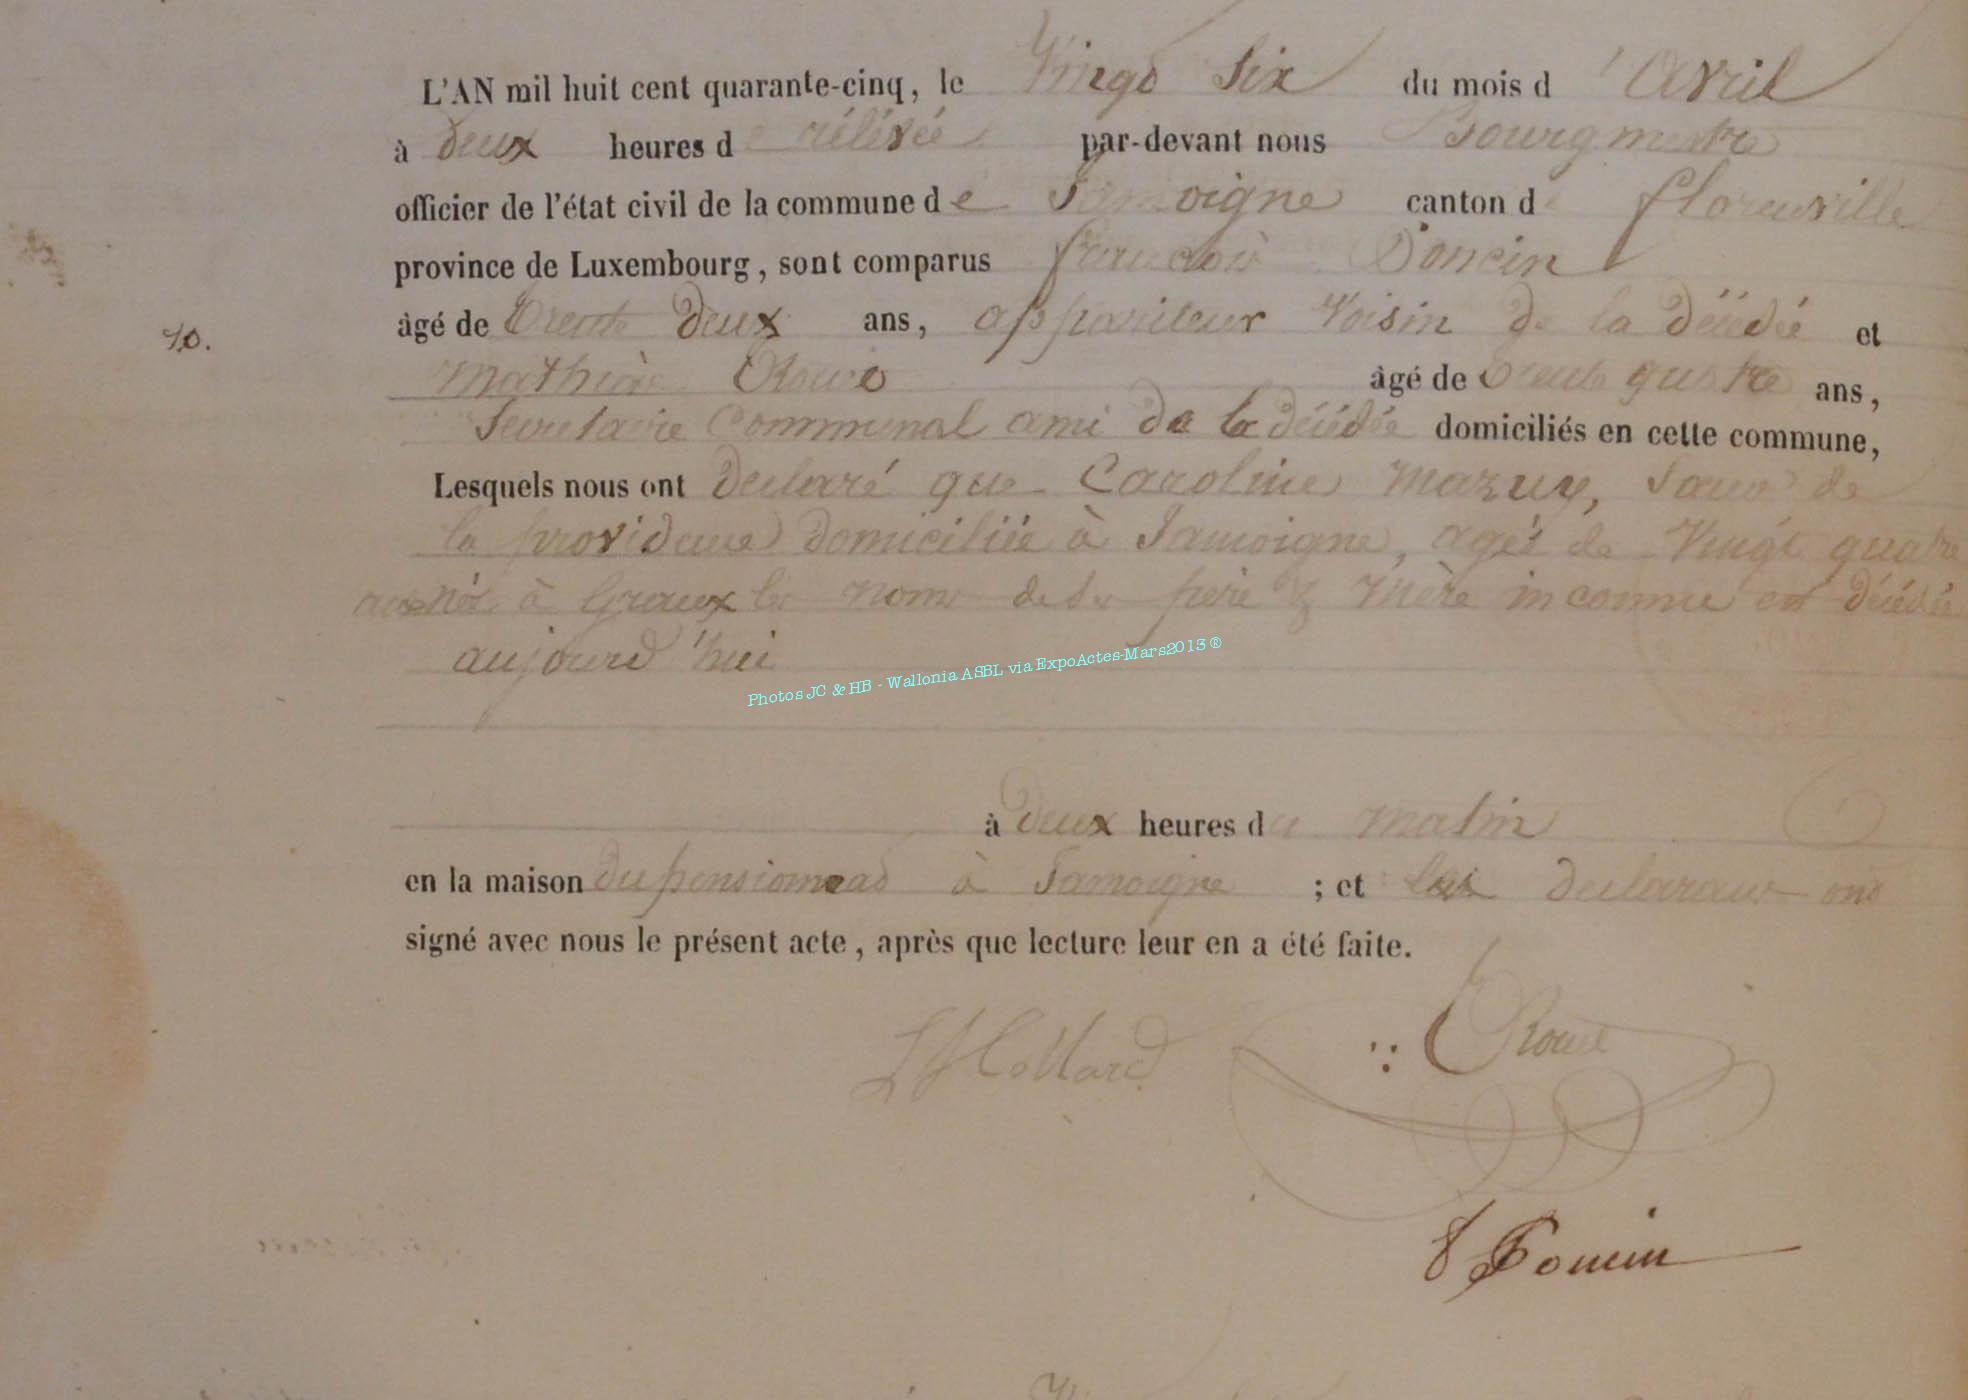 L'AN mil huit cent quarante-cinq, le Vingt Six du mois d'avril
à deux heures de rélévée par-devant nous Bourgmestre
officier de l'état civil de la commune de Jamoigne canton de florenville
province de Luxembourg, sont comparus francois Poncin
âgé de trente deux ans, appariteur Voisin de la décédée et
10.
mathias âgé de trente quatre ans,
Secretaire Communal ami de la décédée domiciliés en cette commune,
Lesquels nous ont declaré que Caroline mazuy, Soeur de
la providence domiciliée à Jamoigne, agée de Vingt quatre
ans née à Graux les noms de Se père & mère inconnue est décédée
aujourd'hui
Photos JC & HB - Wallonia ASBL via ExpoActes-Mars2013 ®
à deux heures du matin
en la maison du pensionnad à Jamoigne ; et les declarans ont
signé avec nous le présent acte, après que lecture leur en a été faite.
Hollard
Poncin